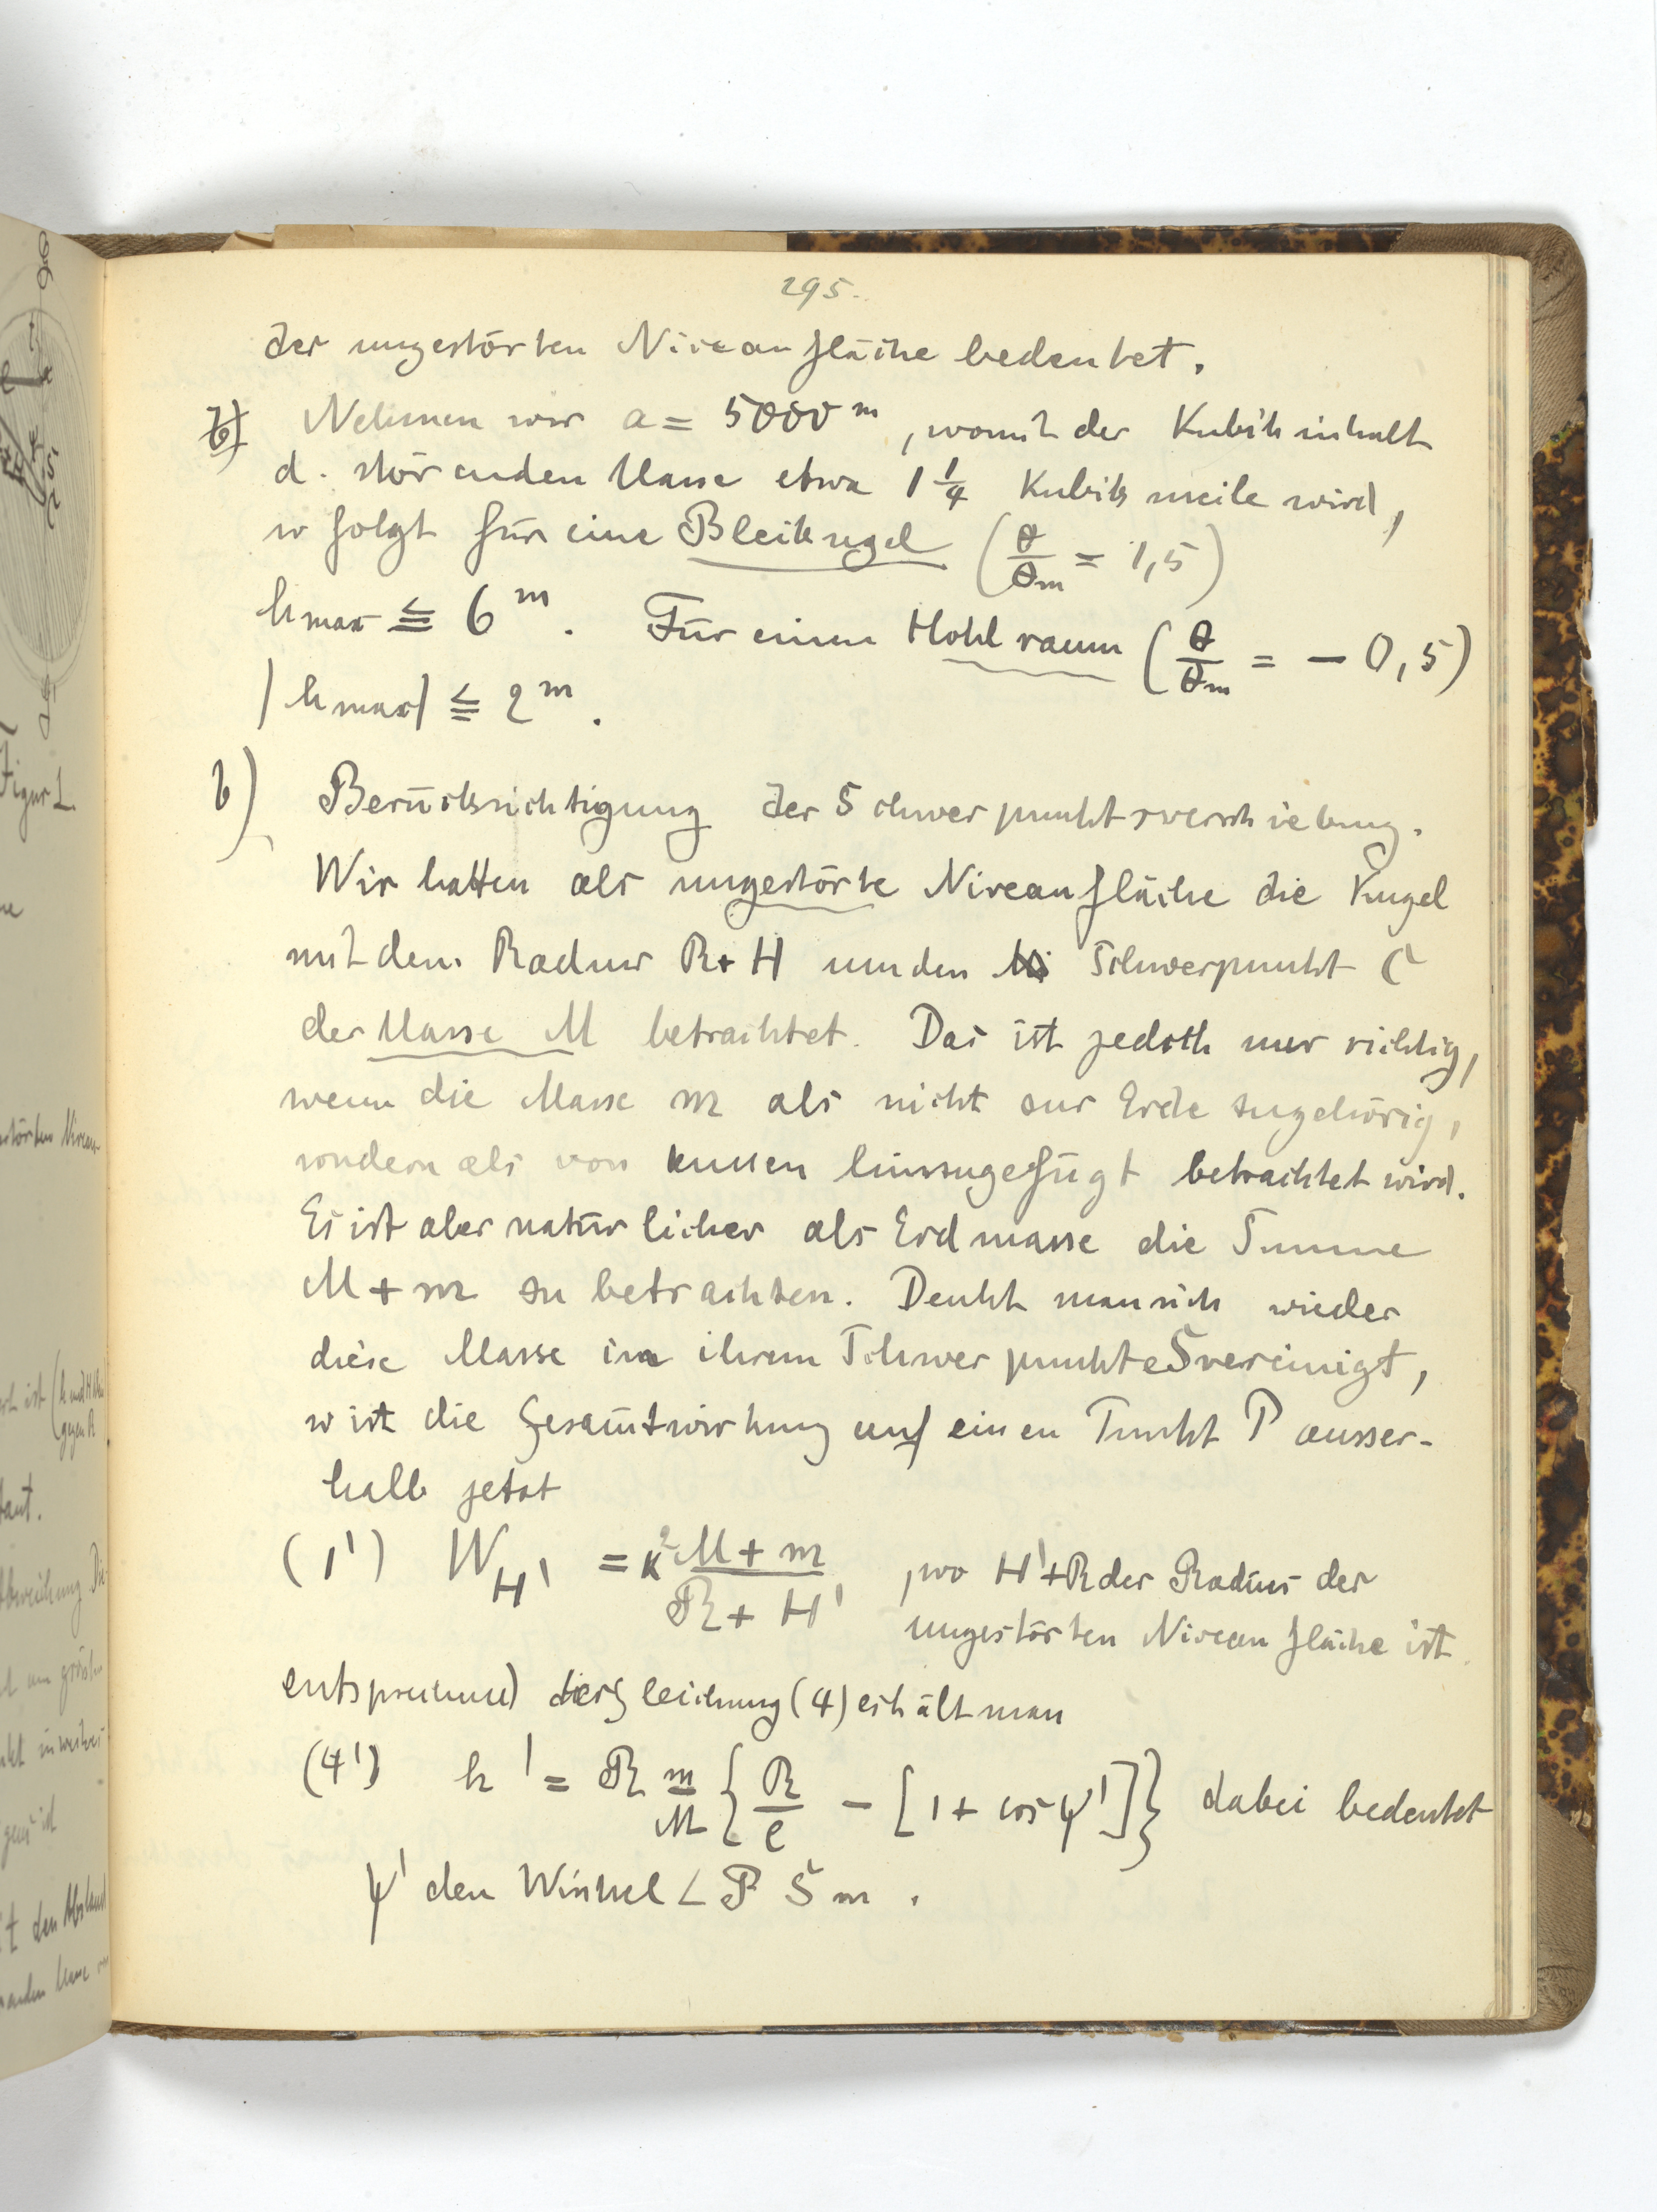 295.
der ungestörten Niveaufläche bedeutet.
b) Nehmen wir a = 5000 m, womit der Kubikinhalt
d. störenden Masse etwa 1 1/4 Kubikmeile wird,
so folgt für eine Bleikugel (θ/θm = 1,5)
hmax ≦ 6 m. Für einen Hohlraum (θ/θm = − 0,5)
|hmax| ≦ 2 m.
b) Berücksichtigung der Schwerpunktsverschiebung.
Wir hatten als ungestörte Niveaufläche die Kugel
mit dem Radius R+H um den Schwerpunkt C
der Masse M betrachtet. Das ist jedoch nur richtig,
wenn die Masse m als nicht zur Erde zugehörig,
sondern als von aussen hinzugefügt betrachtet wird.
Es ist aber natürlicher als Erdmasse die Summe
M + m zu betrachten. Denkt man sich wieder
diese Masse in ihrem Schwerpunkte S vereinigt,
so ist die Gesamtwirkung auf einen Punkt P ausser-
halb jetzt
(1') W_H' = κ² (M + m)/(R + H') , wo H'+R der Radius der
ungestörten Niveaufläche ist
entsprechend der Gleichung (4) erhält man
(4') h' = R m/M {R/e − [1 + cos ψ']} dabei bedeutet
ψ' den Winkel ∠ P S m .
Figur 1.